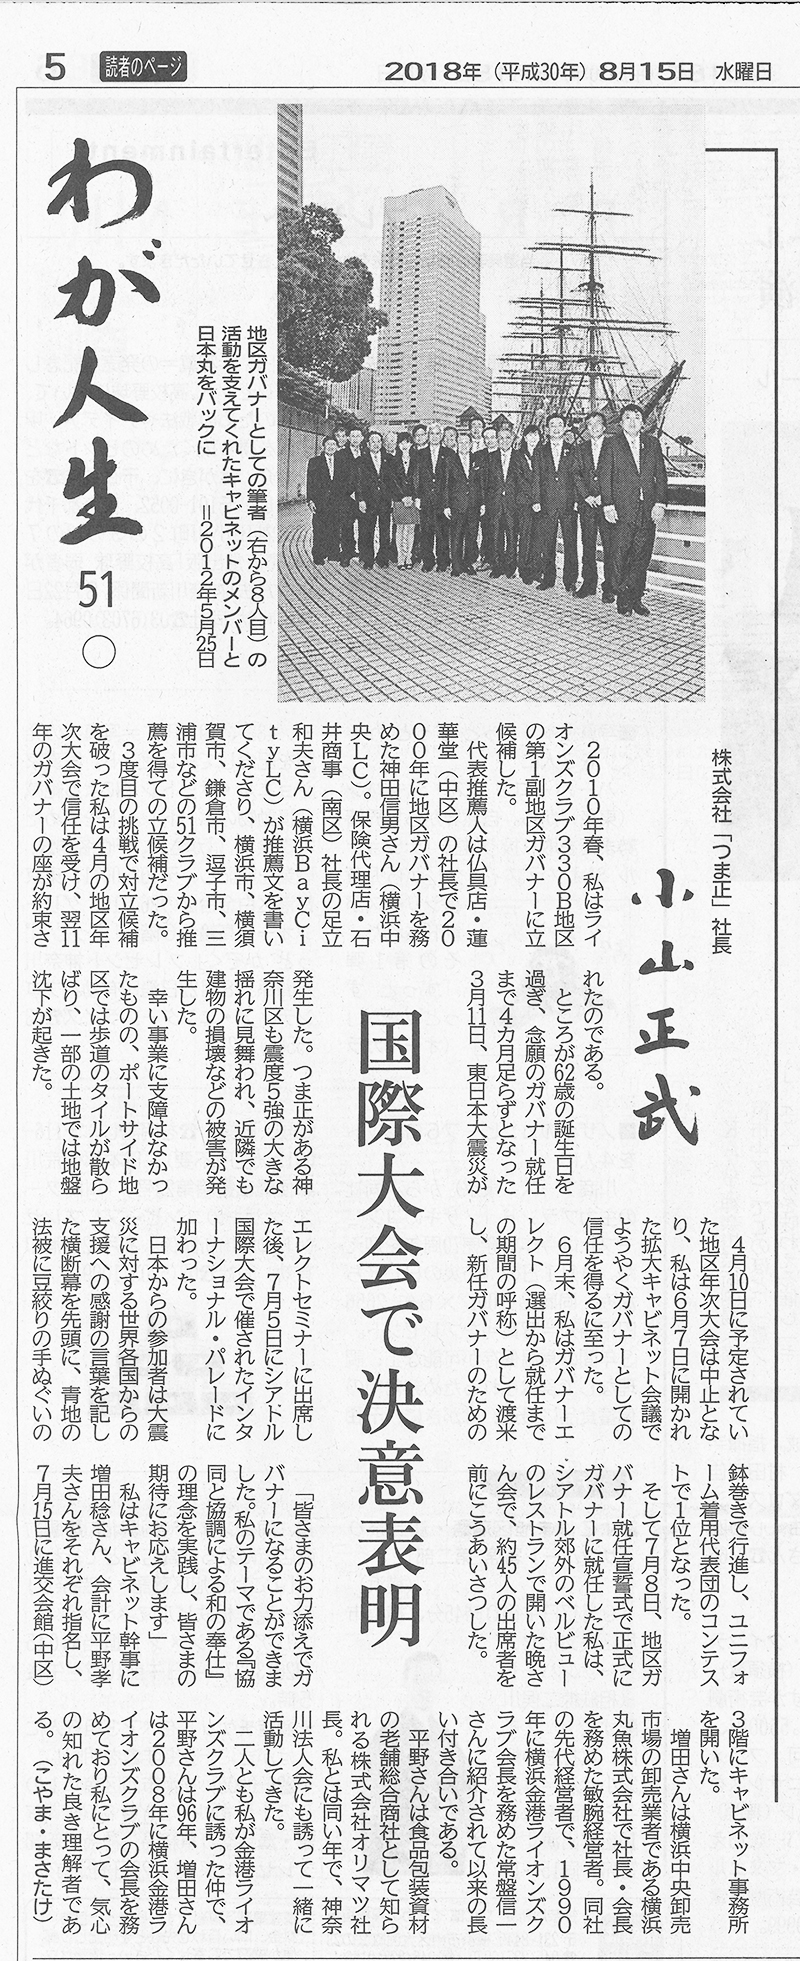 5 読者のページ
2018年(平成30年)8月15日 水曜日
わが人生
51
○
地区ガバナーとしての筆者(右から8人目)の
活動を支えてくれたキャビネットのメンバーと
日本丸をバックに
=2012年5月25日
株式会社「つま正」社長
小山正武
国際大会で決意表明
2010年春、私はライ
オンズクラブ330B地区
の第1副地区ガバナーに立
候補した。
代表推薦人は仏具店・蓮
華堂(中区)の社長で20
00年に地区ガバナーを務
めた神田信男さん(横浜中
央LC)。保険代理店・石
井商事(南区)社長の足立
和夫さん(横浜BayCi
tyLC)が推薦文を書い
てくださり、横浜市、横須
賀市、鎌倉市、逗子市、三
浦市などの51クラブから推
薦を得ての立候補だった。
3度目の挑戦で対立候補
を破った私は4月の地区年
次大会で信任を受け、翌11
年のガバナーの座が約束さ
れたのである。
ところが62歳の誕生日を
過ぎ、念願のガバナー就任
まで4カ月足らずとなった
3月11日、東日本大震災が
発生した。つま正がある神
奈川区も震度5強の大きな
揺れに見舞われ、近隣でも
建物の損壊などの被害が発
生した。
幸い事業に支障はなかっ
たものの、ポートサイド地
区では歩道のタイルが散ら
ばり、一部の土地では地盤
沈下が起きた。
4月10日に予定されてい
た地区年次大会は中止とな
り、私は6月7日に開かれ
た拡大キャビネット会議で
ようやくガバナーとしての
信任を得るに至った。
6月末、私はガバナーエ
レクト(選出から就任まで
の期間の呼称)として渡米
し、新任ガバナーのための
エレクトセミナーに出席し
た後、7月5日にシアトル
国際大会で催されたインタ
ーナショナル・パレードに
加わった。
日本からの参加者は大震
災に対する世界各国からの
支援への感謝の言葉を記し
た横断幕を先頭に、青地の
法被に豆絞りの手ぬぐいの
鉢巻きで行進し、ユニフォ
ーム着用代表団のコンテス
トで1位となった。
そして7月8日、地区ガ
バナー就任宣誓式で正式に
ガバナーに就任した私は、
シアトル郊外のベルビュー
のレストランで開いた晩さ
ん会で、約45人の出席者を
前にこうあいさつした。
「皆さまのお力添えでガ
バナーになることができま
した。私のテーマである『協
同と協調による和の奉仕』
の理念を実践し、皆さまの
期待にお応えします」
私はキャビネット幹事に
増田稔さん、会計に平野孝
夫さんをそれぞれ指名し、
7月15日に進交会館(中区)
3階にキャビネット事務所
を開いた。
増田さんは横浜中央卸売
市場の卸売業者である横浜
丸魚株式会社で社長・会長
を務めた敏腕経営者。同社
の先代経営者で、1990
年に横浜金港ライオンズク
ラブ会長を務めた常盤信一
さんに紹介されて以来の長
い付き合いである。
平野さんは食品包装資材
の老舗総合商社として知ら
れる株式会社オリマツ社
長。私とは同い年で、神奈
川法人会にも誘って一緒に
活動してきた。
二人とも私が金港ライオ
ンズクラブに誘った仲で、
平野さんは96年、増田さん
は2008年に横浜金港ラ
イオンズクラブの会長を務
めており私にとって、気心
の知れた良き理解者であ
る。(こやま・まさたけ)